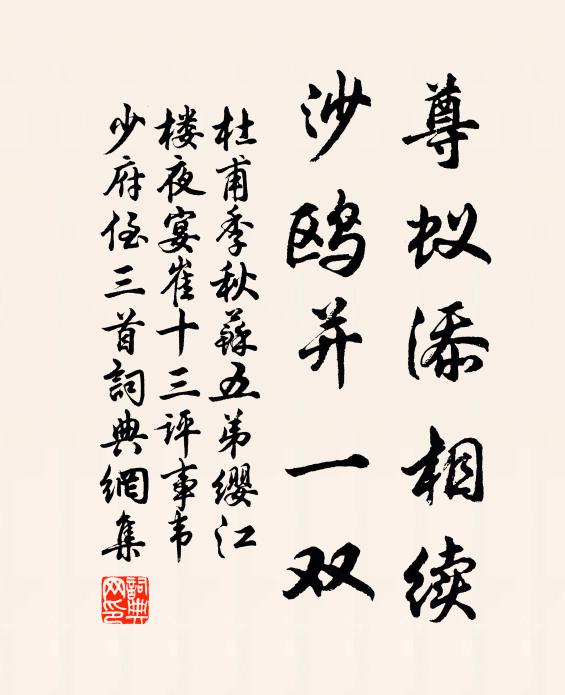 尊蚁添相续
沙鸥并一双
杜甫季秋蘇五弟缨江
楼夜宴崔十三评事韦
少府侄三首詞典網集
詞典
网印